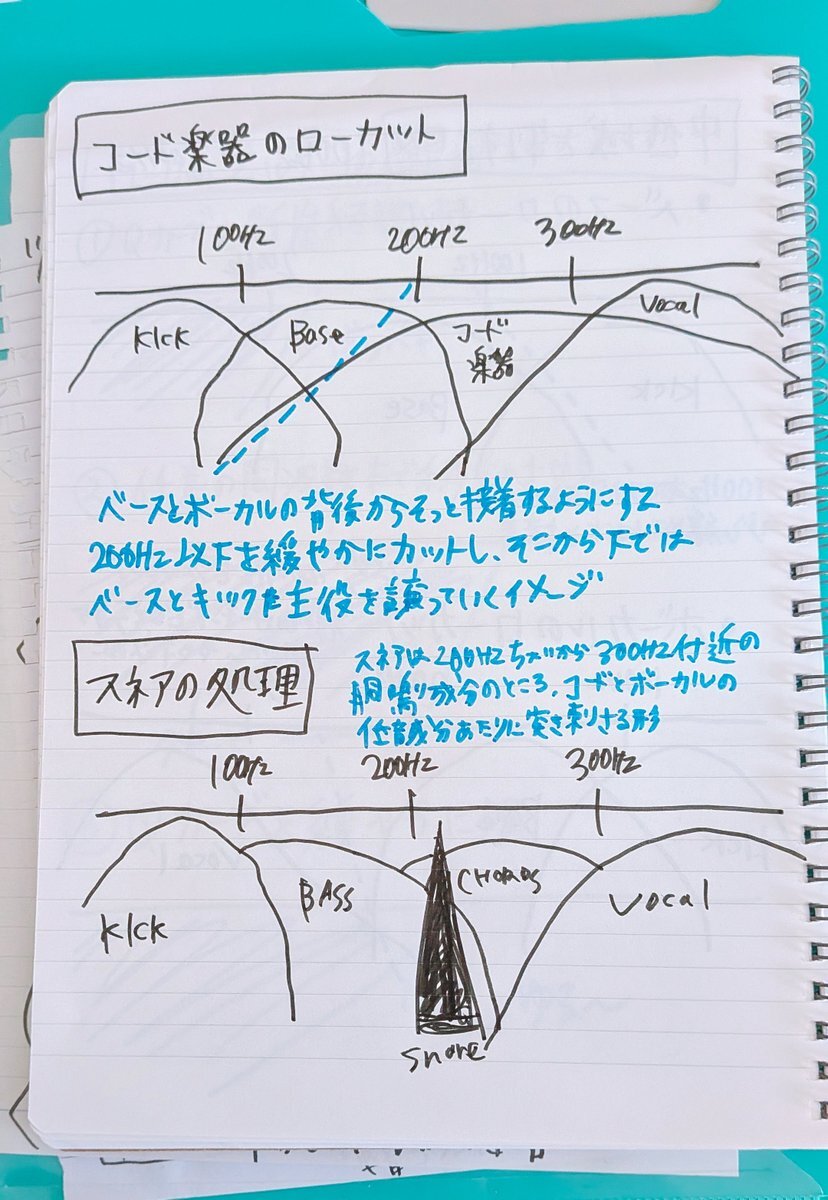 コード楽器のローカット
100Hz 200Hz 300Hz
Kick Base コード Vocal
楽器
ベースとボーカルの背後からそっと接着するようにする
200Hz以下を緩やかにカットし、そこから下では
ベースとキックに主役を譲っていくイメージ
スネアの処理
スネアは200Hzちょいから300Hz付近の
胴鳴り成分のところ、コードとボーカルの
低音成分あたりに突き刺さる形
100Hz 200Hz 300Hz
Kick BASS CHORDS Vocal
Snare